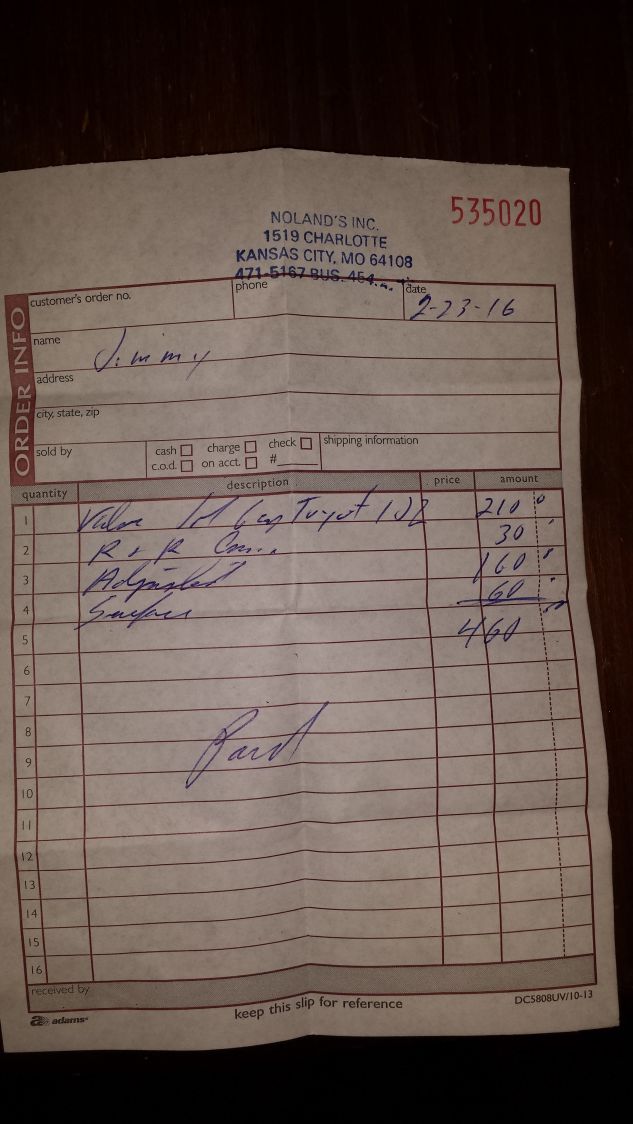 535020
NOLAND'S INC.
1519 CHARLOTTE
KANSAS CITY, MO 64108
471-5167 BUS. 454
ORDER INFO
customer's order no. phone date 2-23-16
name Jimmy
address
city, state, zip
sold by cash charge check shipping information
c.o.d. on acct. #
quantity description price amount
1 Valve Job 210
2 R & R 30
3 Adjusted 160
4 Surface 60
5 460
6
7
8
Paid
9
10
11
12
13
14
15
16
received by
adams keep this slip for reference DC5808UV/10-13